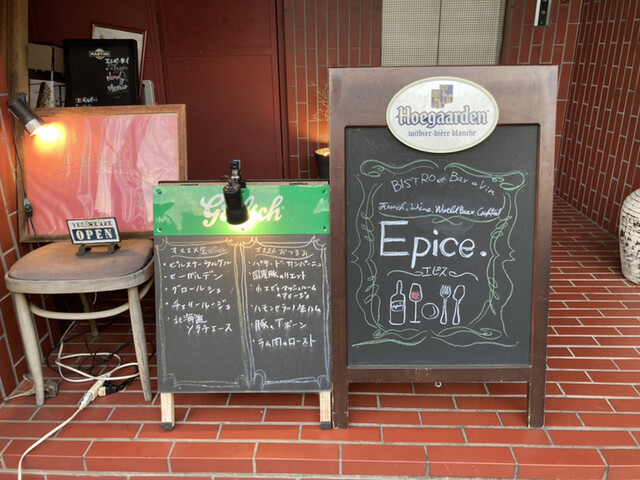 MARTINI
YES, WE ARE
OPEN
Grolsch
オススメ生ビール
・ピルスナーウルケル
・ヒューガルデン
・グロールシュ
・チェリールージュ
・北海道
ソラチエース
オススメおつまみ
・パテ・ド・カンパーニュ
・国産豚のリエット
・小エビとマッシュルーム
のアヒージョ
・ハモンセラーノ生ハム
・豚のTボーン
・ラム肉のロースト
Hoegaarden
witbier-bière blanche
BISTRO et Bar a Vin
French, Wine, World Beer, Cocktail
Epice.
エピス